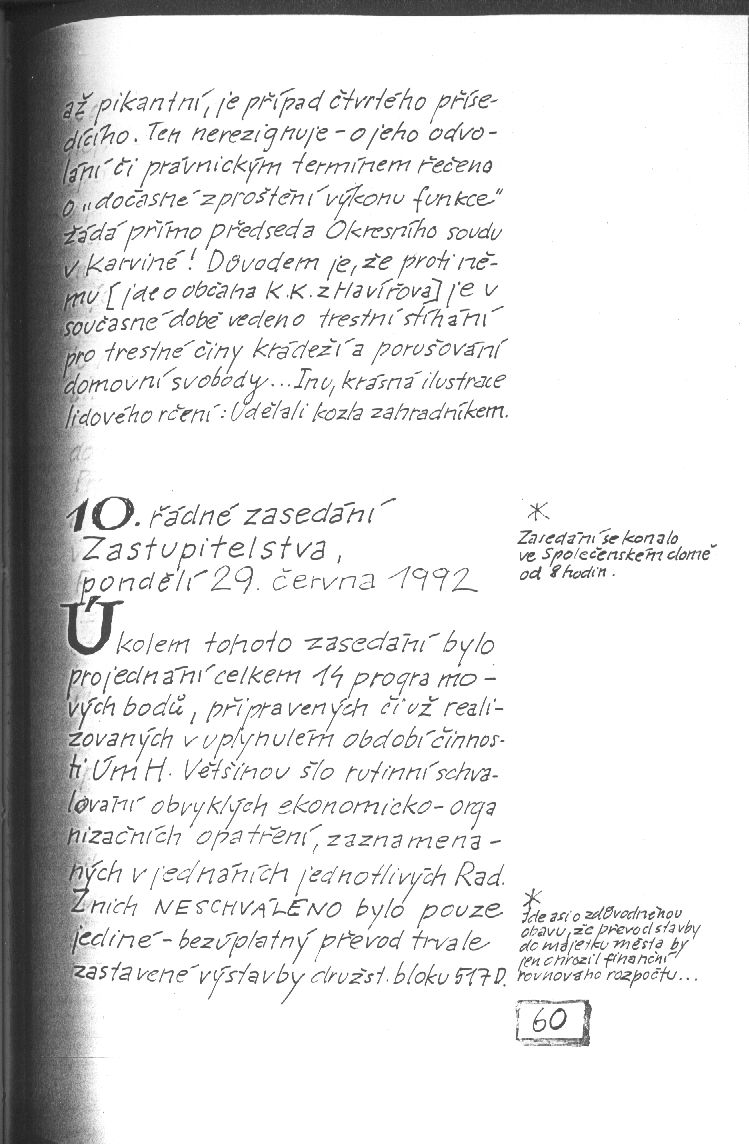 až pikantní, je případ čtvrtého příse-
dícího. Ten nerezignuje - o jeho odvo-
lání či právnickým termínem řečeno
o „dočasné zproštění výkonu funkce"
žádá přímo předseda Okresního soudu
v Karviné! Důvodem je, že proti ně-
mu [jde o občana K.K. z Havířova] je v
současné době vedeno trestní stíhání
pro trestné činy krádeží a porušování
domovní svobody... Inu, krásná ilustrace
lidového rčení: Udělali kozla zahradníkem.
10. řádné zasedání
Zastupitelstva,
pondělí 29. června 1992
*
Zasedání se konalo
ve Společenském domě
od 8 hodin.
Úkolem tohoto zasedání bylo
projednání celkem 14 progra mo-
vých bodů, připravených či už reali-
zovaných v uplynulém období činnos-
ti ÚmH. Většinou šlo rutinní schva-
lování obvyklých ekonomicko-orga
nizačních opatření, zaznamena-
ných v jednáních jednotlivých Rad.
Z nich NESCHVÁLENO bylo pouze
jediné - bezúplatný převod trvale
zastavené výstavby družst. bloku 517 D.
*
Jde asi o zdůvodněnou
obavu, že převod stavby
do majetku města by
jen ohrozil finanční
rovnováho rozpočtu...
60